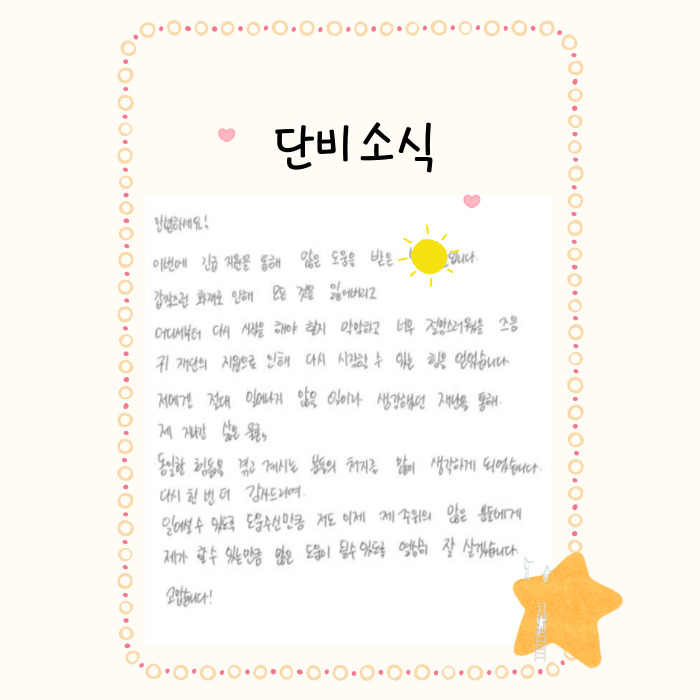 단비 소식
안녕하세요!
이번에 긴급 지원을 통해 많은 도움을 받은 입니다.
갑작스런 화재로 인해 모든 것을 잃어버리고
어디서부터 다시 시작을 해야 할지 막막하고 너무 절망스러웠을 즈음
귀 재단의 지원으로 인해 다시 시작할 수 있는 힘을 얻었습니다
저에겐 절대 일어나지 않을 일이라 생각했던 재난을 통해.
제 지난 삶은 물론,
동일한 힘듦을 겪고 계시는 분들의 처지를 많이 생각하게 되었습니다.
다시 한 번 더 감사드리며.
일어설 수 있도록 도움주신만큼 저도 이제 제 주위의 많은 분들에게
제가 할 수 있는만큼 많은 도움이 될 수 있도록 열심히 잘 살겠습니다.
고맙습니다!